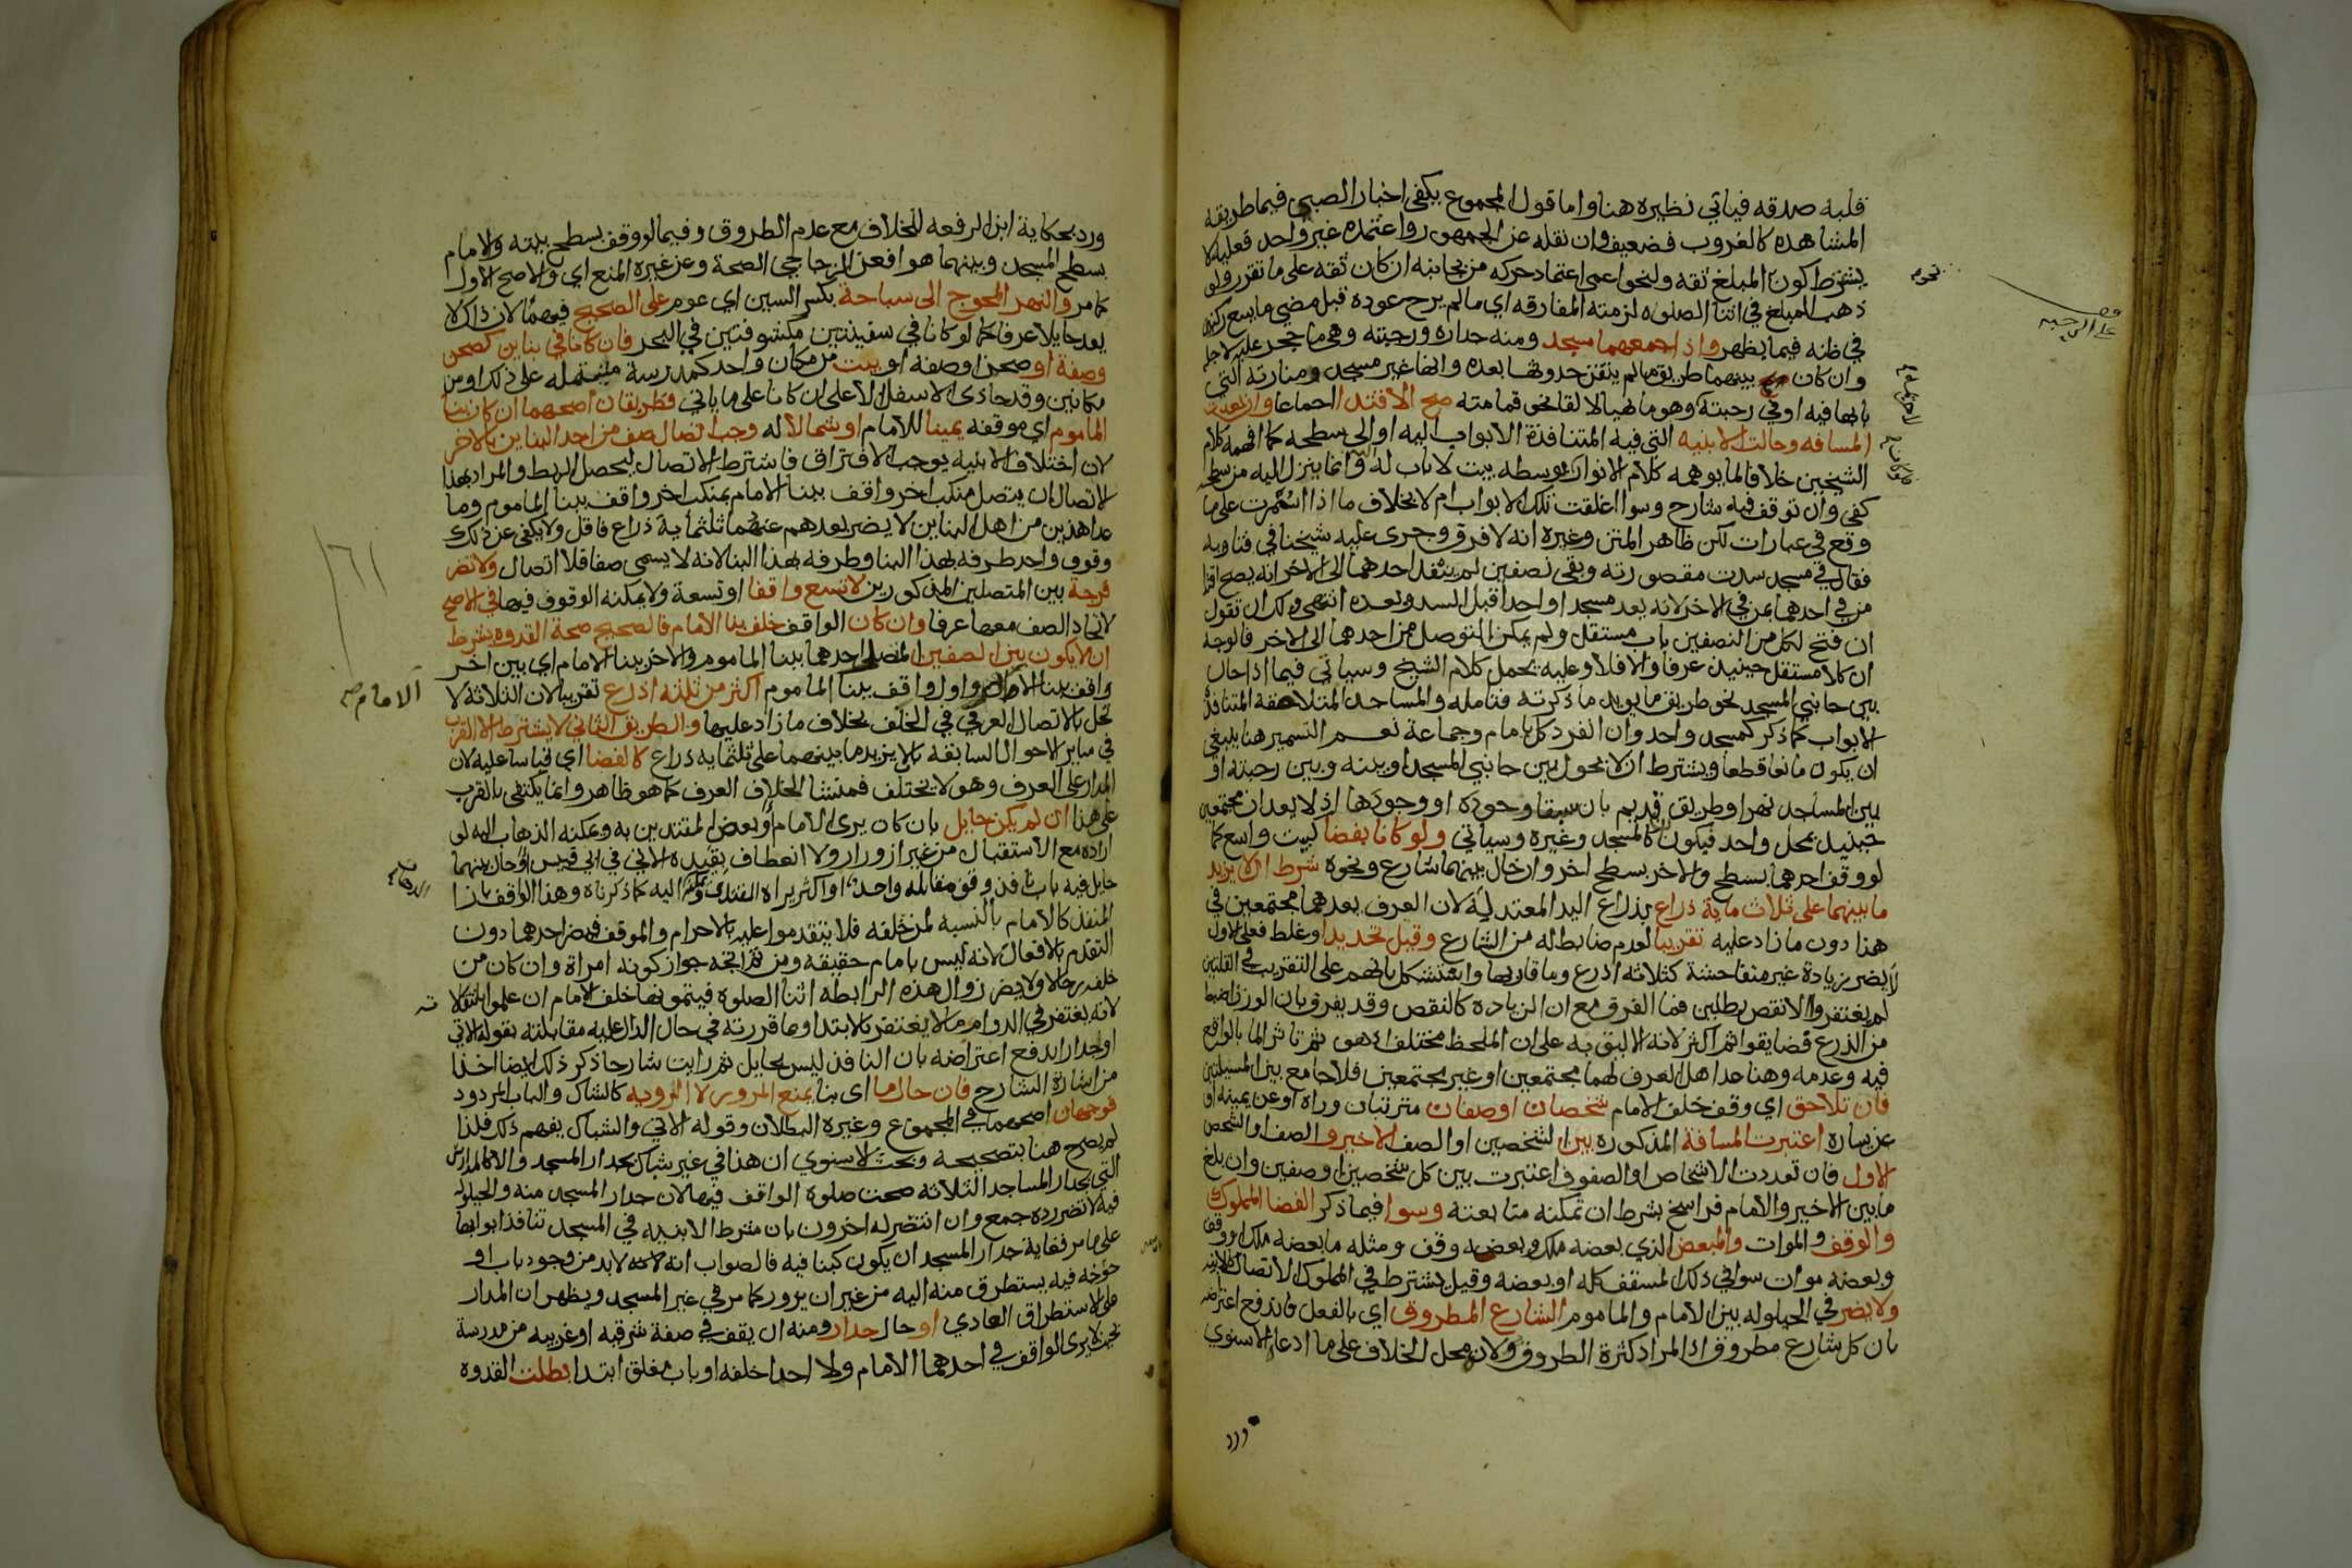 قلبه صدقه فياتي نظيره هنا واما قول المجموع يكفي اخبار الصبي فيما طريقه
المشاهده كالغروب فضعيف وان نقله عن الجمهور واعتمده غير واحد فعليه لا
يشترط كون المبلغ ثقه ولنحو اعمى اعتماد حركه من بجانبه ان كان ثقه على ما تقرر ولو
ذهب المبلغ في اثنا الصلوه لزمته المفارقه اي ما لم يرج عوده قبل مضي ما يسع ركنين
في ظنه فيما يظهر واذا جمعهما مسجد ومنه جداره ورحبته وهي ما حجر عليه لاجله
وان كان بينهما طريق ما لم يتيقن حدوثها بعده وانها غير مسجد ومنارته التي
بابها فيه او في رحبته وهو ما تهيا لالقا نحو قمامته صح الاقتدا اجماعا وان بعدت
المسافه وحالت الابنيه التي فيه المتنافذة الابواب اليه او الى سطحه كما افهمه كلام
الشيخين خلافا لما يوهمه كلام الانوار بوسطه بيت لا باب له وانما ينزل اليه من سطحه
كفى وان توقف فيه شارح وسوا اغلقت تلك الابواب ام لا بخلاف ما اذا سمرت على ما
وقع في عبارات لكن ظاهر المتن وغيره انه لا فرق وجرى عليه شيخنا في فتاويه
فقال في مسجد سدت مقصورته وبقى نصفين لم ينفذ احدهما الى الاخر انه يصح اقتدا
من في احدهما بمن في الاخر لانه يعد مسجدا واحدا قبل السد وبعده انتهى ولك ان تقول
ان فتح لكل من النصفين باب مستقل ولم يمكن التوصل من احدهما الى الاخر فالوجه
ان كلا مستقل حينيذ عرفا والا فلا وعليه يحمل كلام الشيخ وسياتي فيما اذا حال
بين جانبي المسجد نحو طريق ما يويد ما ذكرته فتامله والمساجد المتلاصقة المتنافذة
الابواب كما ذكر كمسجد واحد وان انفرد كل بامام وجماعة نعم التسمير هنا ينبغي
ان يكون مانعا قطعا ويشترط ان لا يحول بين جانبي المسجد او بينه وبين رحبته او
بين المساجد نهر او طريق قديم بان سبقا وجوده او وجودها اذ لا يعدان مجتمعين
حينيذ بمحل واحد فيكون كالمسجد وغيره وسياتي ولو كانا بفضا كبيت واسع كما
لو وقف احدهما بسطح والاخر بسطح اخر وان حال بينهما شارع ونحوه شرط ان لا يزيد
ما بينهما على ثلاث ماية ذراع بذراع اليد المعتدلة لان العرف يعدهما مجتمعين في
هذا دون ما زاد عليه تقريبا لعدم ضابط له من الشارع وقيل تحديدا وغلط فعلى الاول
لا يضر زيادة غير متفاحشة كثلاثة اذرع وما قاربها واستشكل بانهم على التقريب في القلتين
لم يغتفروا الا نقص رطلين فما الفرق مع ان الزياده كالنقص وقد يفرق بان الوزن اضبط
من الذرع فضايقوا ثم اكثر لانه الاليق به على ان الملحظ مختلف اذ هو ثم تاثر الما بالواقع
فيه وعدمه وهنا عد اهل العرف لهما مجتمعين او غير مجتمعين فلا جامع بين المسيلتين
فان تلاحق اي وقف خلف الامام شخصان او صفان مترتبان وراه او عن يمينه او
عن يساره اعتبرت المسافة المذكوره بين الشخصين او الصف الاخير والصف او الشخص
الاول فان تعددت الاشخاص او الصفوف اعتبرت بين كل شخصين او صفين وان بلغ
ما بين الاخير والامام فراسخ بشرط ان تمكنه متابعته وسوا فيما ذكر الفضا المملوك
والوقف والموات والمبعض الذي بعضه ملك وبعضه وقف ومثله ما بعضه ملك او وقف
وبعضه موات سوا في ذلك المسقف كله او بعضه وقيل يشترط في المملوك الاتصال كالابنيه
ولا يضر في الحيلوله بين الامام والماموم الشارع المطروق اي بالفعل فاندفع اعتراضه
بان كل شارع مطروق اذ المراد كثرة الطروق ولانه محل الخلاف على ما ادعاه الاسنوي
ورد
نحوه
على الرحبه
ورد بحكاية ابن الرفعه الخلاف مع عدم الطروق وفيما لو وقف بسطح بيته والامام
بسطح المسجد وبينهما هوا فعن الزجاجي الصحة وعن غيره المنع اي والاصح الاول
كما مر والنهر المحوج الى سباحة بكسر السين اي عوم على الصحيح فيهما لان ذلك لا
يعد حايلا عرفا كما لو كانا في سفينتين مكشوفتين في البحر فان كانا في بناين كصحن
وصفة او صحن او صفه او بيت من مكان واحد كمدرسة مشتمله على ذلك او من
مكانين وقد حاذى الاسفل الاعلى ان كانا على ما ياتي فطريقان اصحهما ان كان بنا
الماموم اي موقفه يمينا للامام او شمالا له وجب اتصال صف من احد البناين بالاخر
لان اختلاف الابنيه يوجب الافتراق فاشترط الاتصال ليحصل الربط والمراد بهذا
الاتصال ان يتصل منكب اخر واقف ببنا الامام بمنكب اخر واقف ببنا الماموم وما
عدا هذين من اهل البناين لا يضر بعدهم عنهما ثلثماية ذراع فاقل ولا يكفي عن ذلك
وقوف واحد طرفه بهذا البنا وطرفه بهذا البنا لانه لا يسمى صفا فلا اتصال ولا تضر
فرجة بين المتصلين المذكورين لا تسع واقفا او تسعة ولا يمكنه الوقوف فيها في الاصح
لاتحاد الصف معها عرفا وان كان الواقف خلف بنا الامام فالصحيح صحة القدوه بشرط
ان لا يكون بين الصفين المصلي احدهما ببنا الماموم والاخر ببنا الامام اي بين اخر
واقف ببنا الامام واول واقف ببنا الماموم اكثر من ثلثه اذرع تقريبا لان الثلاثه لا
تخل بالاتصال العرفي في الخلف بخلاف ما زاد عليها والطريق الثاني لا يشترط الا القرب
في ساير الاحوال السابقة بان لا يزيد ما بينهما على ثلثمايه ذراع كالفضا اي قياسا عليه لان
المدار على العرف وهو لا يختلف فمنشا الخلاف العرف كما هو ظاهر وانما يكتفى بالقرب
على هذا ان لم يكن حايل بان كان يرى الامام او بعض المقتدين به ويمكنه الذهاب اليه لو
اراده مع الاستقبال من غير ازورار ولا انعطاف بقيده الاتي في ابي قبيس او حال بينهما
حايل فيه باب نافذ وقف مقابله واحد او اكثر يراه المقتدي ويمكنه اليه كما ذكرناه وهذا الواقف بازا
المنفذ كالامام بالنسبه لمن خلفه فلا يتقدموا عليه بالاحرام والموقف فيضر احدهما دون
التقدم بالافعال لانه ليس بامام حقيقه ومن ثم اتجه جواز كونه امراة وان كان من
خلفه رجالا ولا يضر زوال هذه الرابطه اثنا الصلوه فيتمونها خلف الامام ان علموا بانتقالا
لانه يغتفر في الدوام ما لا يغتفر بالابتدا وما قررته في حال الدال عليه مقابلته بقوله الاتي
او جدار اندفع اعتراضه بان النافذ ليس بحايل ثم رايت شارحا ذكر ذلك ايضا اخذا
من اشارة الشارح فان حال ما اي بنا يمنع المرور لا الروية كالشباك والباب المردود
فوجهان اصحهما في المجموع وغيره البطلان وقوله الاتي والشباك يفهم ذلك فلذا
لم يصرح هنا بتصحيحه وبحث الاسنوي ان هذا في غير شباك بجدار المسجد والا كالمدارس
التي بجدار المساجد الثلاثه صحت صلوة الواقف فيها لان جدار المسجد منه والحيلوله
فيه لا تضر رده جمع وان انتصر له اخرون بان شرط الابنيه في المسجد تنافذ ابوابها
على ما مر فغاية جدار المسجد ان يكون كبنا فيه فالصواب انه لا بد من وجود باب او
خوخه فيه يستطرق منه اليه من غير ان يزور كما مر في غير المسجد ويظهر ان المدار
على الاستطراق العادي او حال جدار ومنه ان يقف في صفة شرقيه او غربيه من مدرسة
بحيث لا يرى الواقف في احدهما الامام ولا احدا خلفه او باب مغلق ابتدا بطلت القدوه
الامام صح